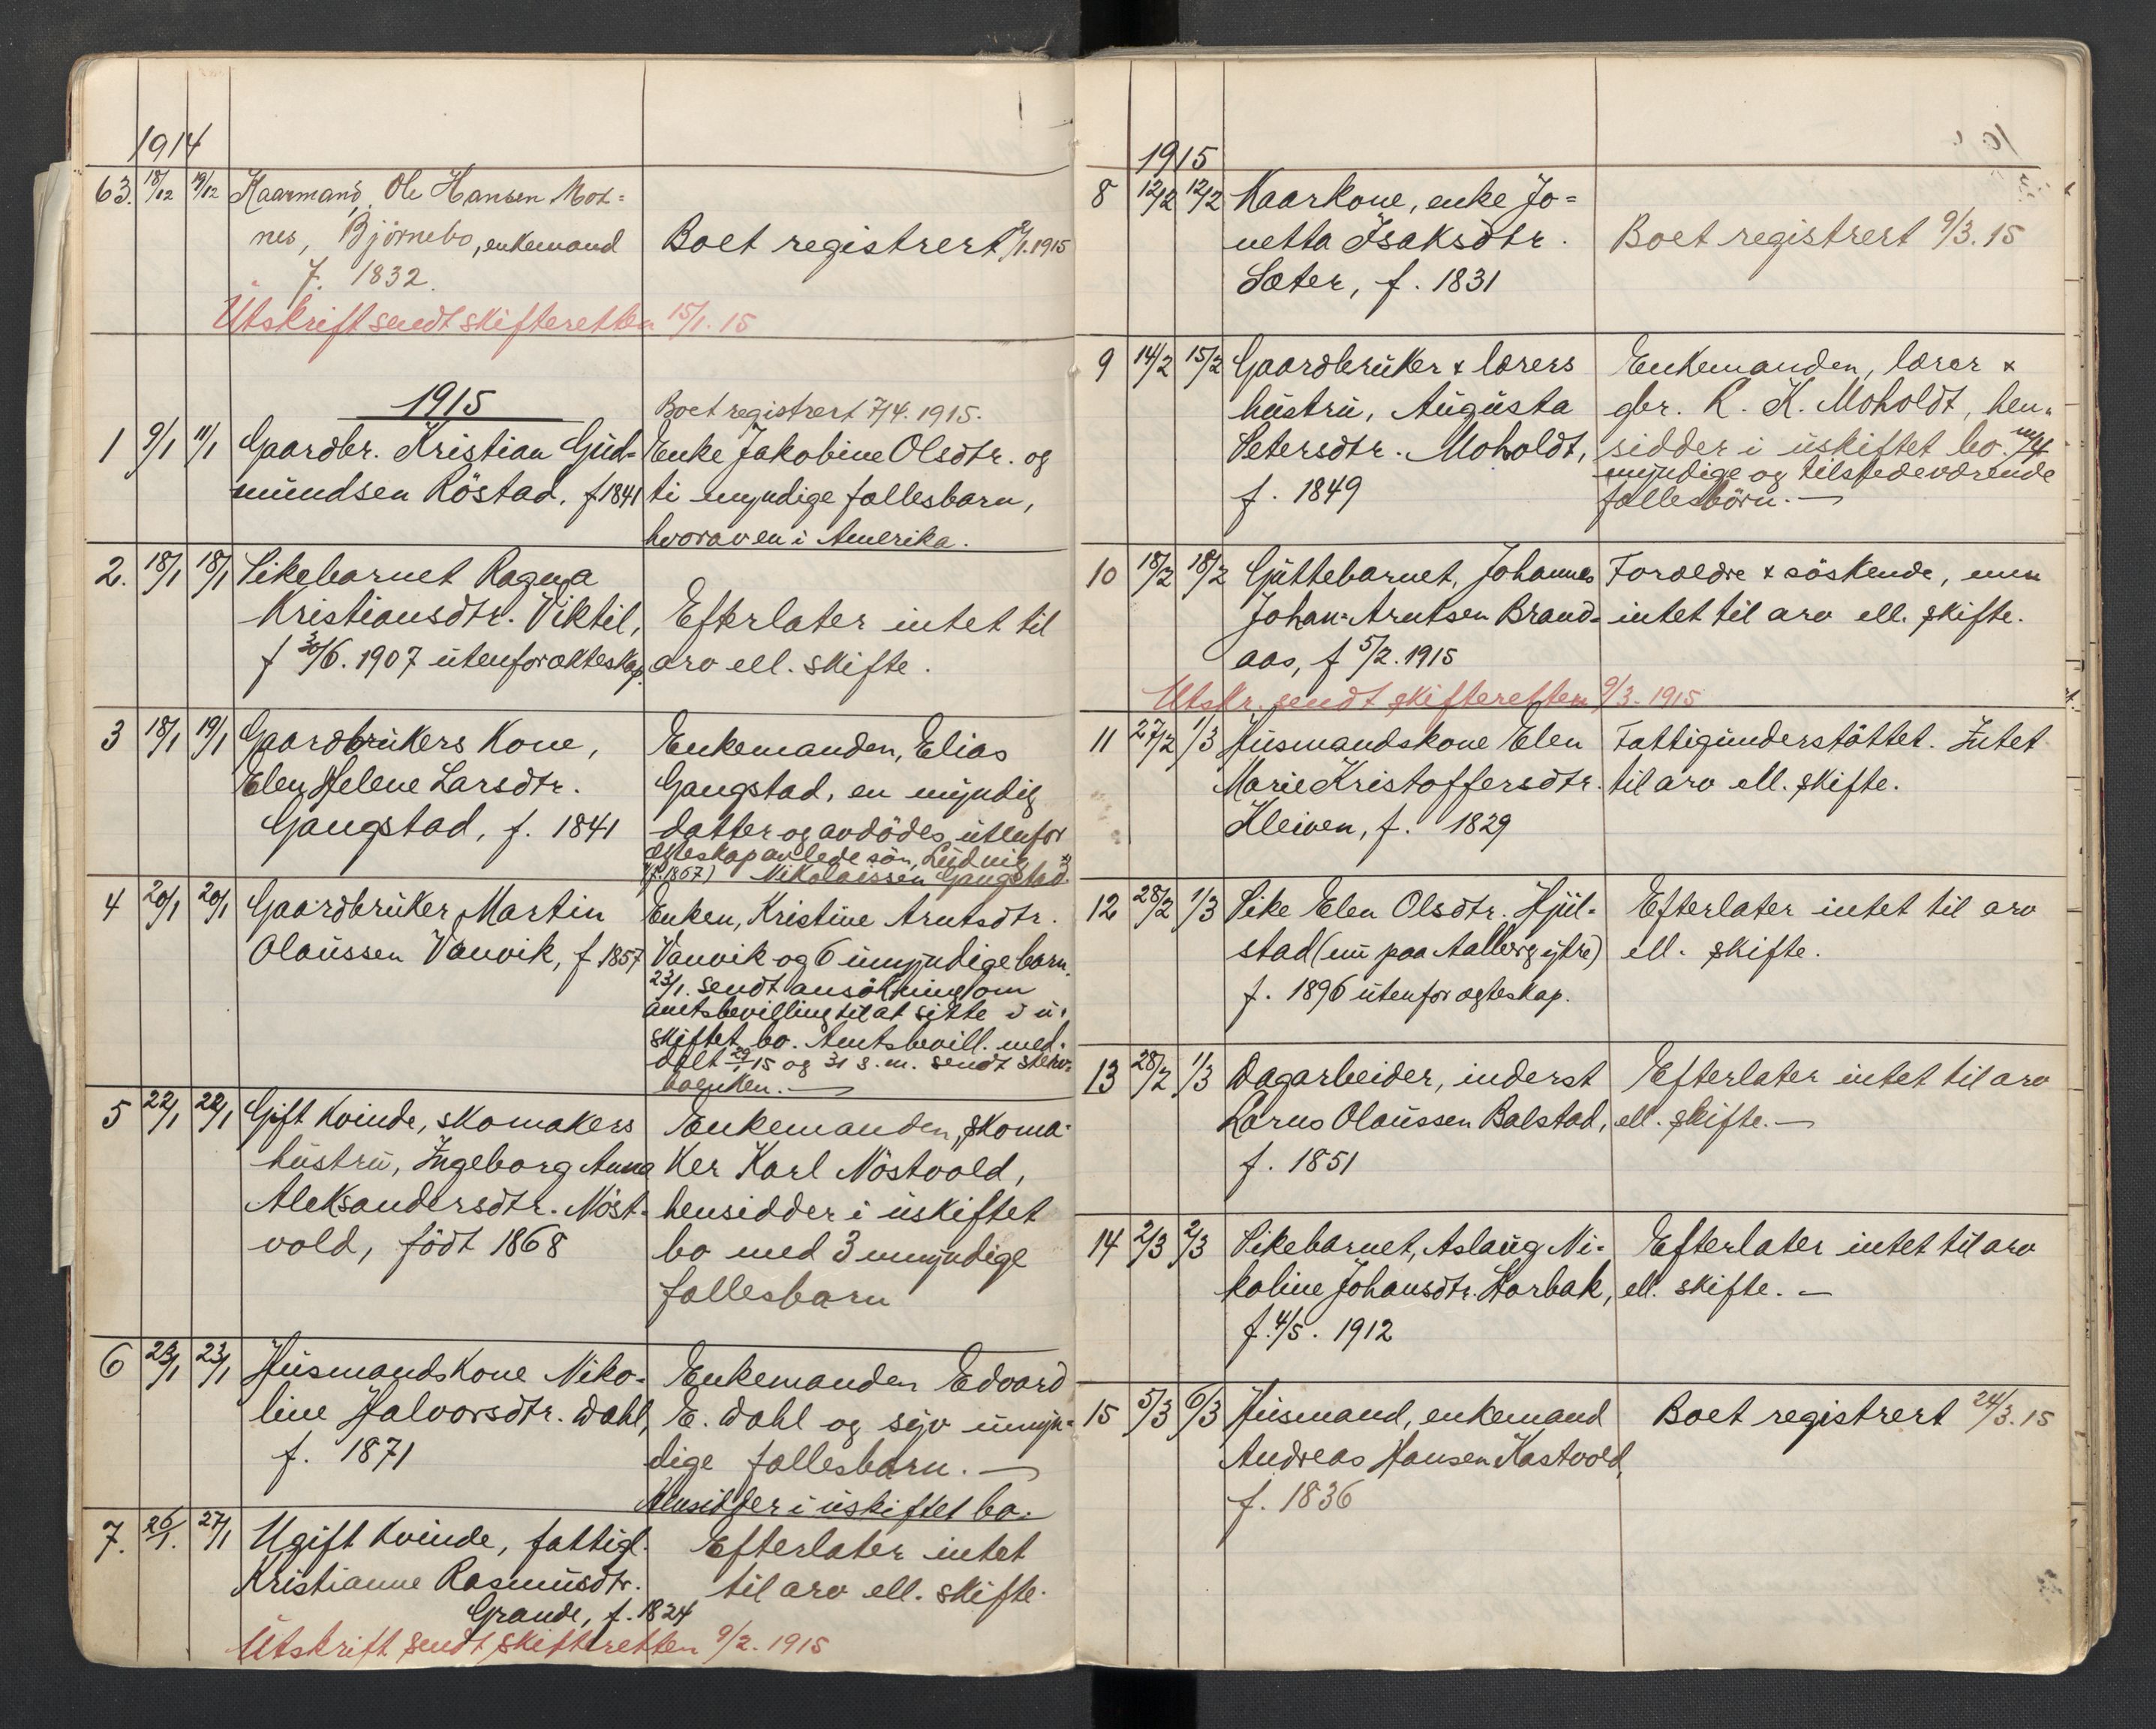 1914
63. 18/12 19/12 Kaarmand, Ole Hansen Mox=
nes, Björnebo, enkemand
f. 1832.
Boet registrert 9/1. 1915
Utskrift sendt skifteretten 15/1. 15
1915
Boet registrert 7/4. 1915.
1 9/1 11/1 Gaardbr. Kristian Gud=
mundsen Röstad, f 1841
Enke Jakobine Olsdtr. og
ti myndige fællesbarn,
hvorav en i Amerika.
2. 18/1 18/1 Pikebarnet Ragna
Kristiansdtr. Viktil,
f 30/6. 1907 utenfor ækteskap.
Efterlater intet til
arv ell. skifte.
3 18/1 19/1 Gaardbrukers kone,
Elen Helene Larsdtr.
Gangstad, f. 1841
Enkemanden, Elias
Gangstad, en myndig
datter og avdödes, utenfor
egteskap avlede sön, Ludvig
(f. 1867) Nikolaissen Gangstad.
4 20/1 20/1 Gaardbruker Martin
Olaussen Vanvik, f 1857
Enken, Kristine Arntsdtr.
Vanvik og 6 umyndige barn.
23/1. sendt ansökning om
amtsbevilling til at sitte i u=
skiftet bo. Amtsbevill. med=
delt 29/1 15 og 31 s. m. sendt sterv=
boenken. —
5 22/1 22/1 Gift kvinde, skomakers
hustru, Ingeborg Anna
Aleksandersdtr. Nöst=
vold, födt 1868
Enkemanden, skoma=
ker Karl Nöstvold,
hensidder i uskiftet
bo med 3 umyndige
fællesbarn
6 23/1 23/1 Husmandskone Niko=
line Halvorsdtr. Dahl,
f. 1871
Enkemanden Edvard
E. Dahl og syv umyn=
dige fællesbarn. —
Hensidder i uskiftet bo.
7. 26/1. 27/1 Ugift kvinde, fattigl.
Kristianne Rasmusdtr.
Grande, f. 1824
Efterlater intet
til arv ell. skifte.
Utskrift sendt skifteretten 9/2. 1915
1915
8 12/2 12/2 Kaarkone, enke Jo=
netta Isaksdtr.
Sæter, f. 1831
Boet registrert 9/3. 15
9 14/2 15/2 Gaardbruker & lærers
hustru, Augusta
Petersdtr. Moholdt,
f. 1849
Enkemanden, lærer &
gbr. R. K. Moholdt, hen=
sidder i uskiftet bo. m/4
myndige og tilstedeværende
fællesbörn. —
10 18/2 18/2 Guttebarnet, Johannes
Johan=Arntsen Brand=
aas, f 5/2. 1915
Forældre & söskende, men
intet til arv ell. skifte.
Utskr. sendt skifteretten 9/3. 1915
11 27/2 1/3 Husmandskone Elen
Marie Kristoffersdtr.
Kleiven, f. 1829
Fattigunderstöttet. Intet
til arv ell. skifte.
12 28/2 1/3 Pike Elen Olsdtr. Hjul=
stad (nu paa Aalberg ytre)
f. 1896 utenfor ægteskap.
Efterlater intet til arv
ell. skifte.
13 28/2 1/3 Dagarbeider, inderst
Lorns Olaussen Balstad,
f. 1851
Efterlater intet til arv
ell. skifte. —
14 2/3 2/3 Pikebarnet, Aslaug Ni=
koline Johansdtr. Korbak,
f. 4/5. 1912
Efterlater intet til arv
ell. skifte. —
15 5/3 6/3 Husmand, enkemand
Andreas Hansen Kastvold,
f. 1836
Boet registrert 24/3. 15